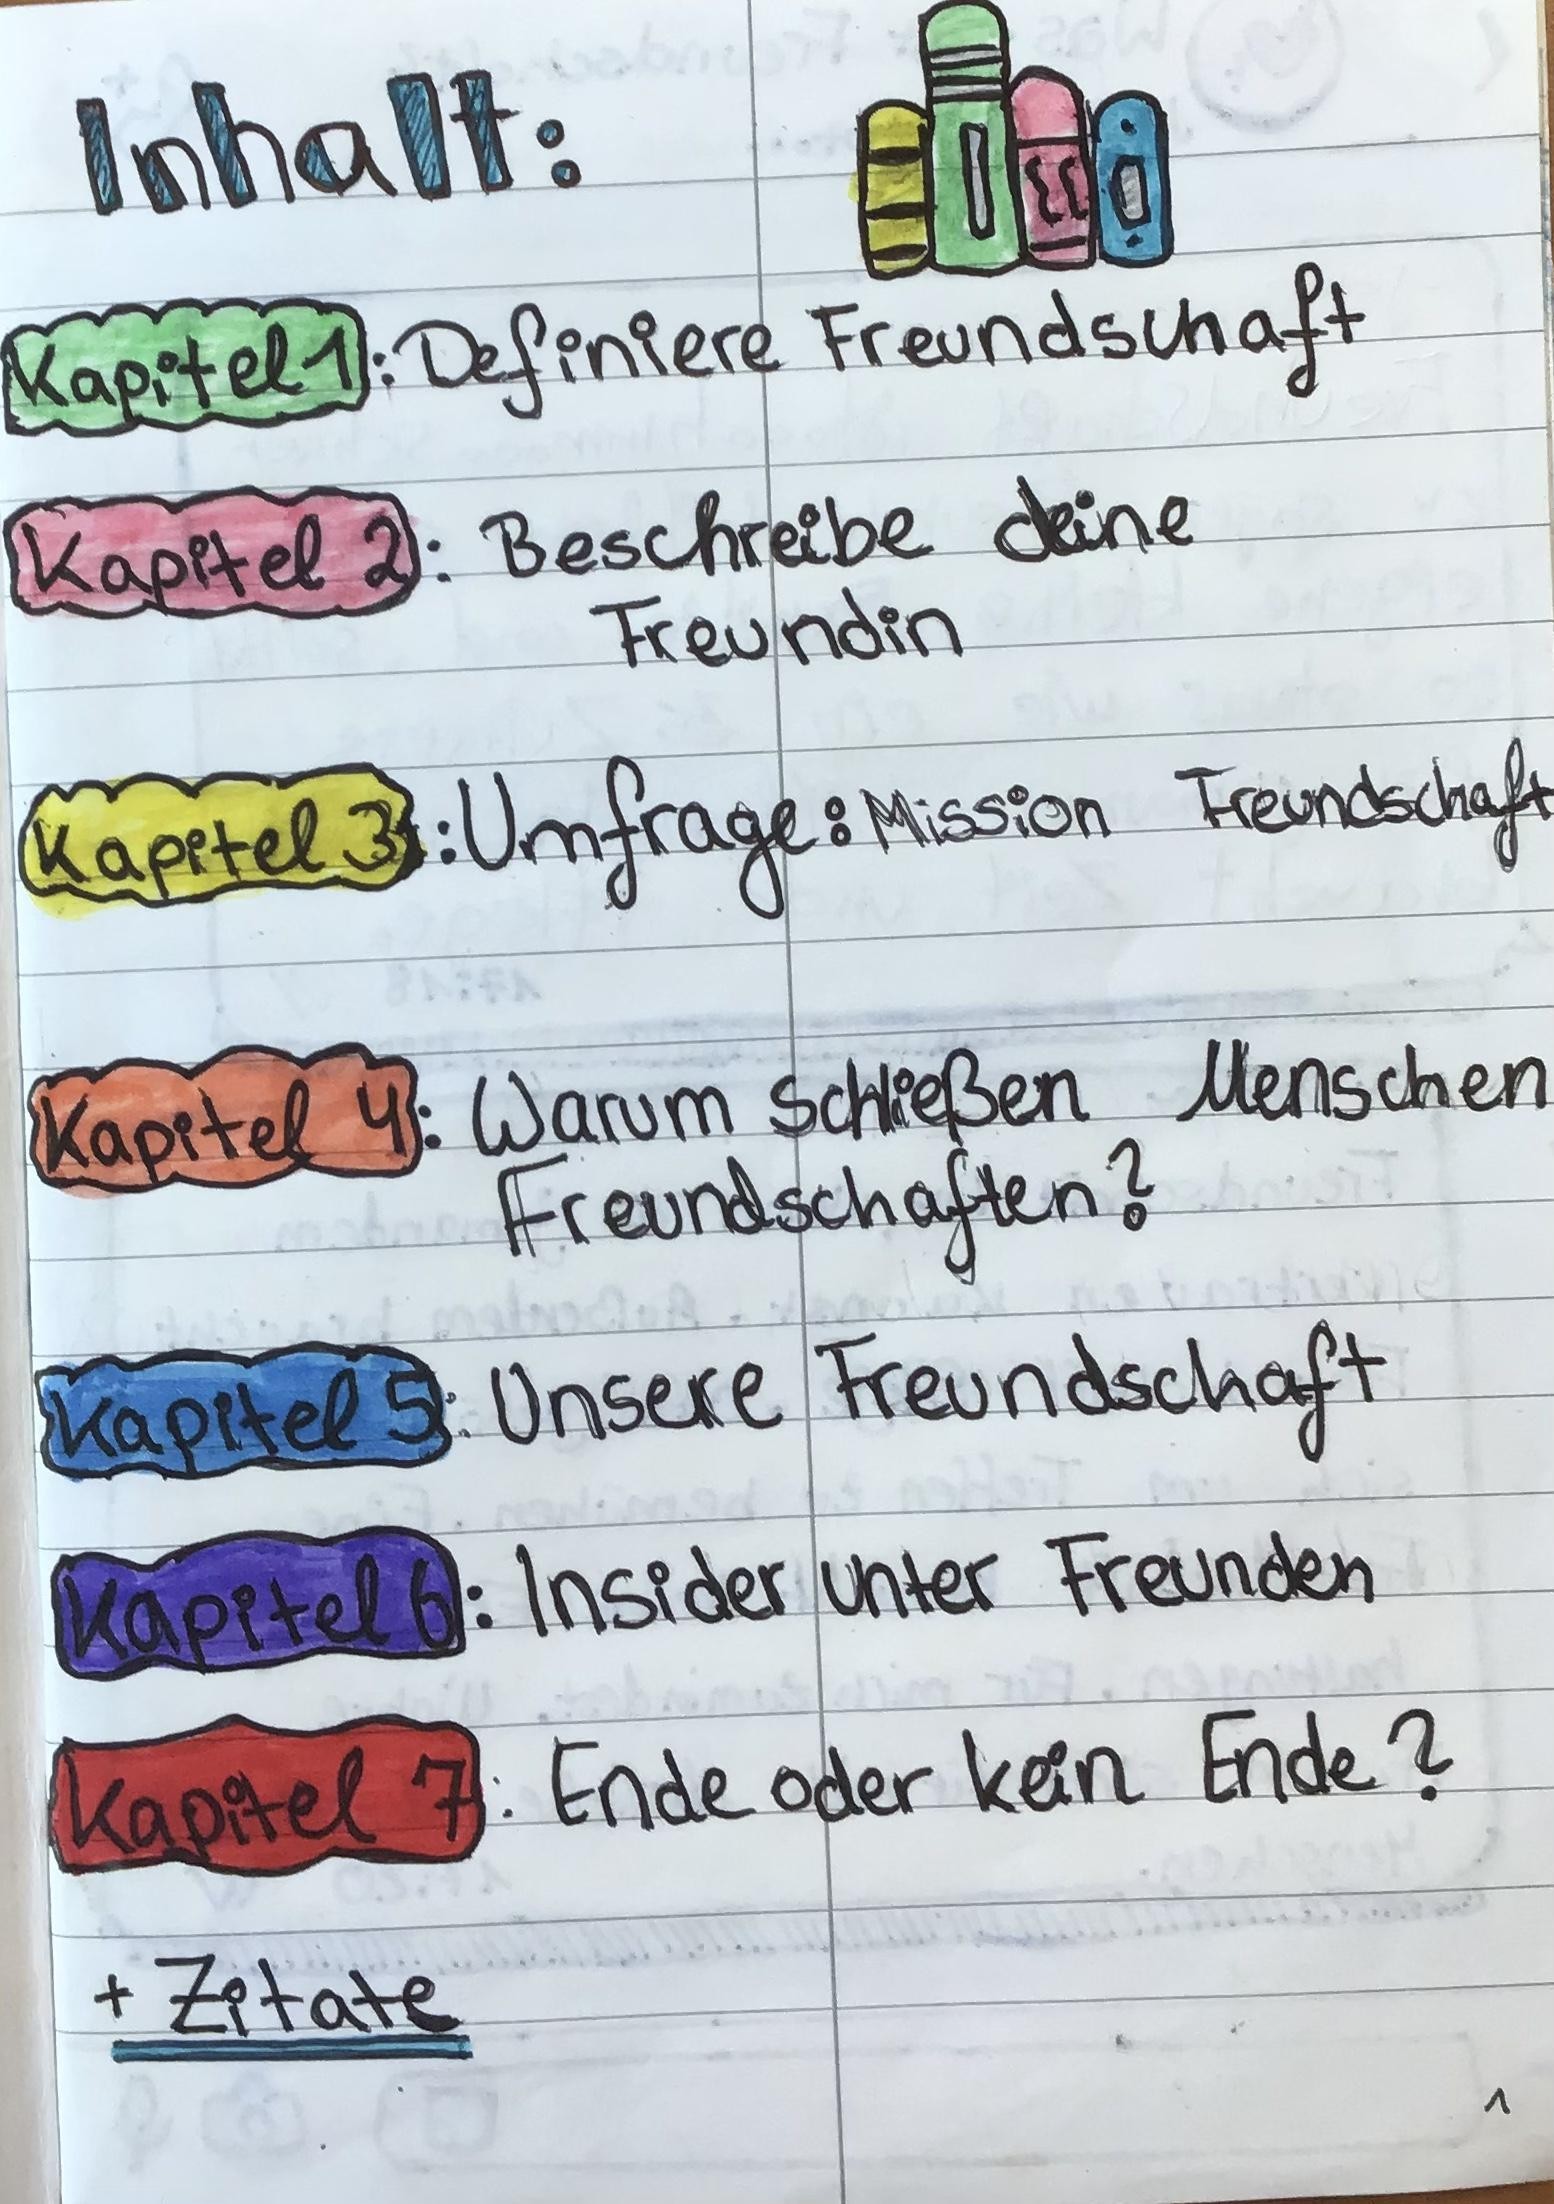 Inhalt:
Kapitel 1: Definiere Freundschaft
Kapitel 2: Beschreibe deine
Freundin
Kapitel 3: Umfrage: Mission Freundschaft
Kapitel 4: Warum schließen Menschen
Freundschaften?
Kapitel 5: Unsere Freundschaft
Kapitel 6: Insider unter Freunden
Kapitel 7: Ende oder kein Ende?
+ Zitate
1